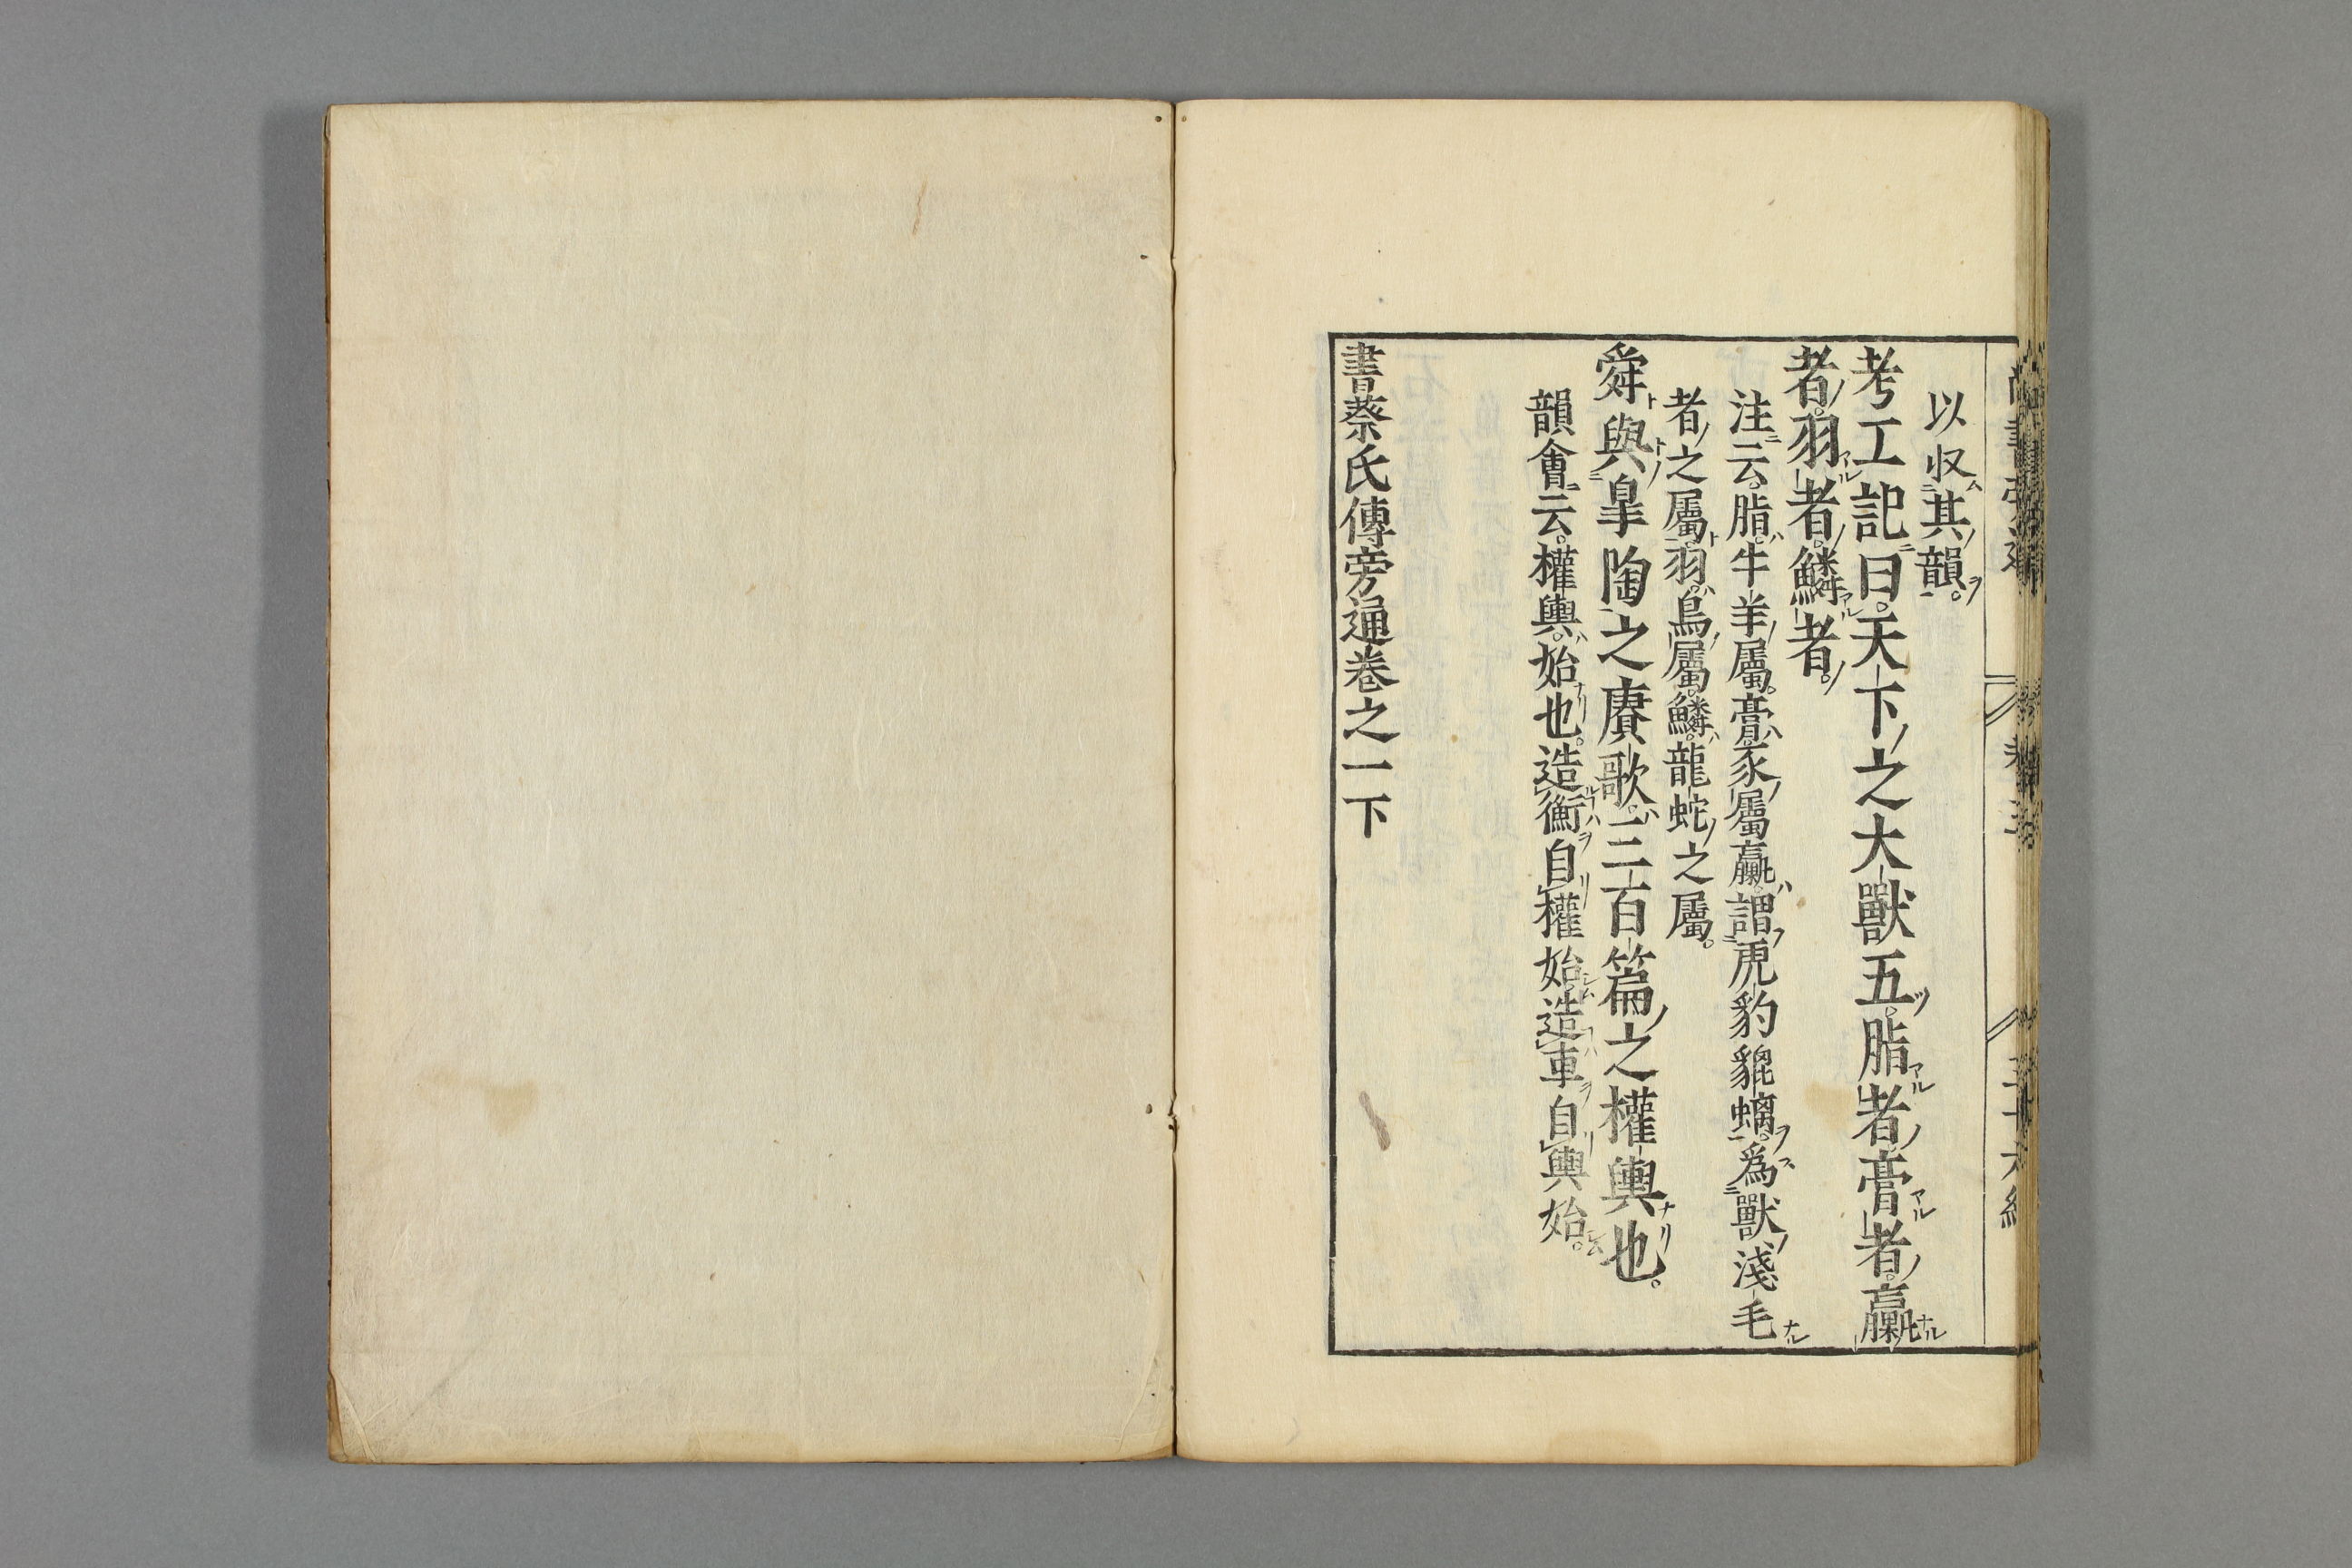 以収其韻。
考工記曰。天下之大獸五。脂者。膏者。臝
者。羽者。鱗者。
注云。脂。牛羊屬。膏。豕屬。臝。謂虎豹貔螭。爲獸淺毛
者之屬。羽。鳥屬。鱗。龍蛇之屬。
舜與皐陶之賡歌。三百篇之權輿也。
韻會云。權輿。始也。造衡自權始。造車自輿始。
書蔡氏傳旁通卷之一下